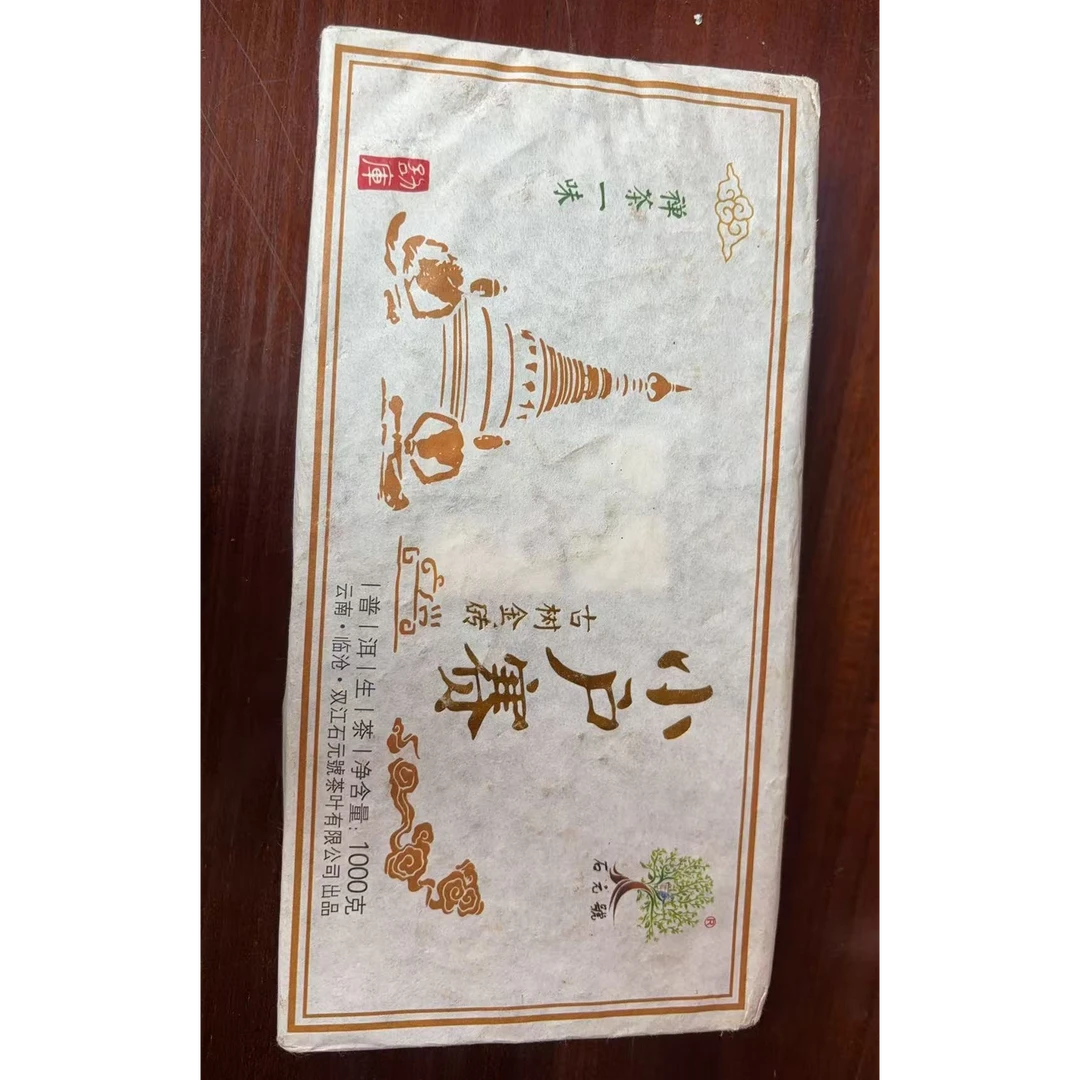 禅茶一味
勐库
石元號
®
小户寨
古树金砖
普|洱|生|茶|净含量:1000克
云南·临沧·双江石元號茶叶有限公司 出品